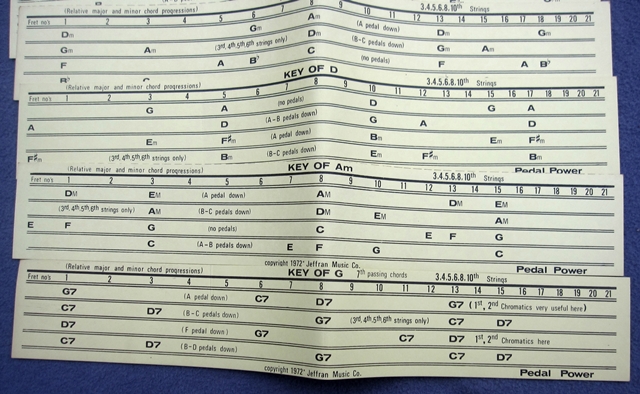 (Relative major and minor chord progressions) 3.4.5.6.8.10th Strings
Fret no's 1 2 3 4 5 6 7 8 9 10 11 12 13 14 15 16 17 18 19 20 21
Gm Am (A pedal down) Gm
Dm (3rd,4th,5th,6th strings only) Dm (B-C pedals down) Dm
Gm Am C Gm Am
F A Bb (no pedals) F A Bb
KEY OF D
(Relative major and minor chord progressions) 3.4.5.6.8.10th Strings
Fret no's 1 2 3 4 5 6 7 8 9 10 11 12 13 14 15 16 17 18 19 20 21
G A (no pedals) D G A
A D (A-B pedals down) G A D
Em F#m (A pedal down) Bm Em F#m
F#m (3rd,4th,5th,6th strings only) Bm (B-C pedals down) Em F#m Bm
Pedal Power
(Relative major and minor chord progressions) KEY OF Am 3.4.5.6.8.10th Strings
Fret no's 1 2 3 4 5 6 7 8 9 10 11 12 13 14 15 16 17 18 19 20 21
DM EM (A pedal down) AM DM EM
(3rd,4th,5th,6th strings only) AM (B-C pedals down) DM EM AM
E F G (no pedals) C E F G
C (A-B pedals down) E F G C
copyright 1972' Jeffran Music Co. Pedal Power
(Relative major and minor chord progressions) KEY OF G 7th passing chords 3.4.5.6.8.10th Strings
Fret no's 1 2 3 4 5 6 7 8 9 10 11 12 13 14 15 16 17 18 19 20 21
G7 (A pedal down) C7 D7 G7 (1st, 2nd Chromatics very useful here)
C7 D7 (B-C pedals down) G7 (3rd,4th,5th,6th strings only) C7 D7
D7 (F pedal down) G7 C7 D7 1st, 2nd Chromatics here
C7 D7 (B-D pedals down) G7 C7 D7
copyright 1972' Jeffran Music Co. Pedal Power